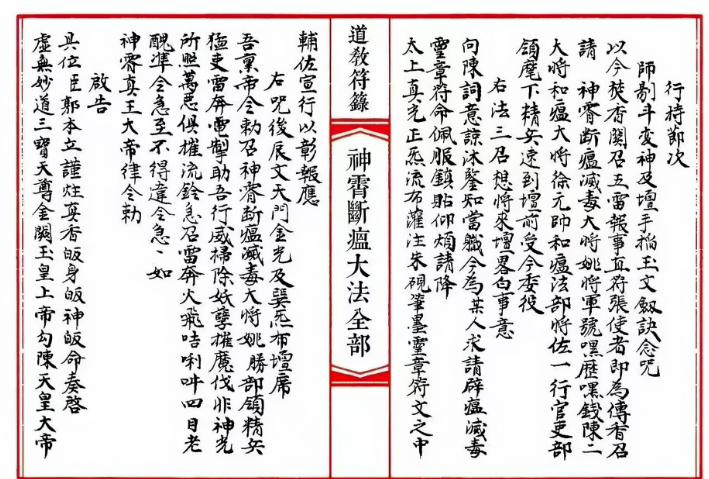 行持節次
師剔斗变神及壇手搯玉文劍訣念咒
以今焚香関召五雷報事直符張使者即為傳香召
請 神霄断瘟滅毒大將姚將軍號嘿歷嘿錢陳二
大將和瘟大將徐元帥和瘟法部將佐一行官吏部
領麾下精兵速到壇前受今委役
右法三召想將來壇畧白事意
向陳詞意諒沐鑒知當職今為某人求請辟瘟滅毒
霊章符命佩服鎮貼仰煩請降
太上真光正炁流布灌注朱硯筆墨霊章符文之中
道教符籙
神霄斷瘟大法全部
輔佐宣行以彰報應
右咒後展文天門金光及巽炁布壇席
吾稟帝令勅召神霄断瘟滅毒大將姚 勝部領精兵
猛吏雷奔電掣助吾行威掃除妖孽摧魔伐非神光
所照萬惡俱摧流鈴急召雷奔火飛咭唎吽四目老
醜準令急至不得違令急丶如
神霄真王大帝律令勅
啟告
具位臣郭本立謹炷真香皈身皈神皈命奏啓
虛無妙道三寶天尊金闕玉皇上帝勾陳天皇大帝